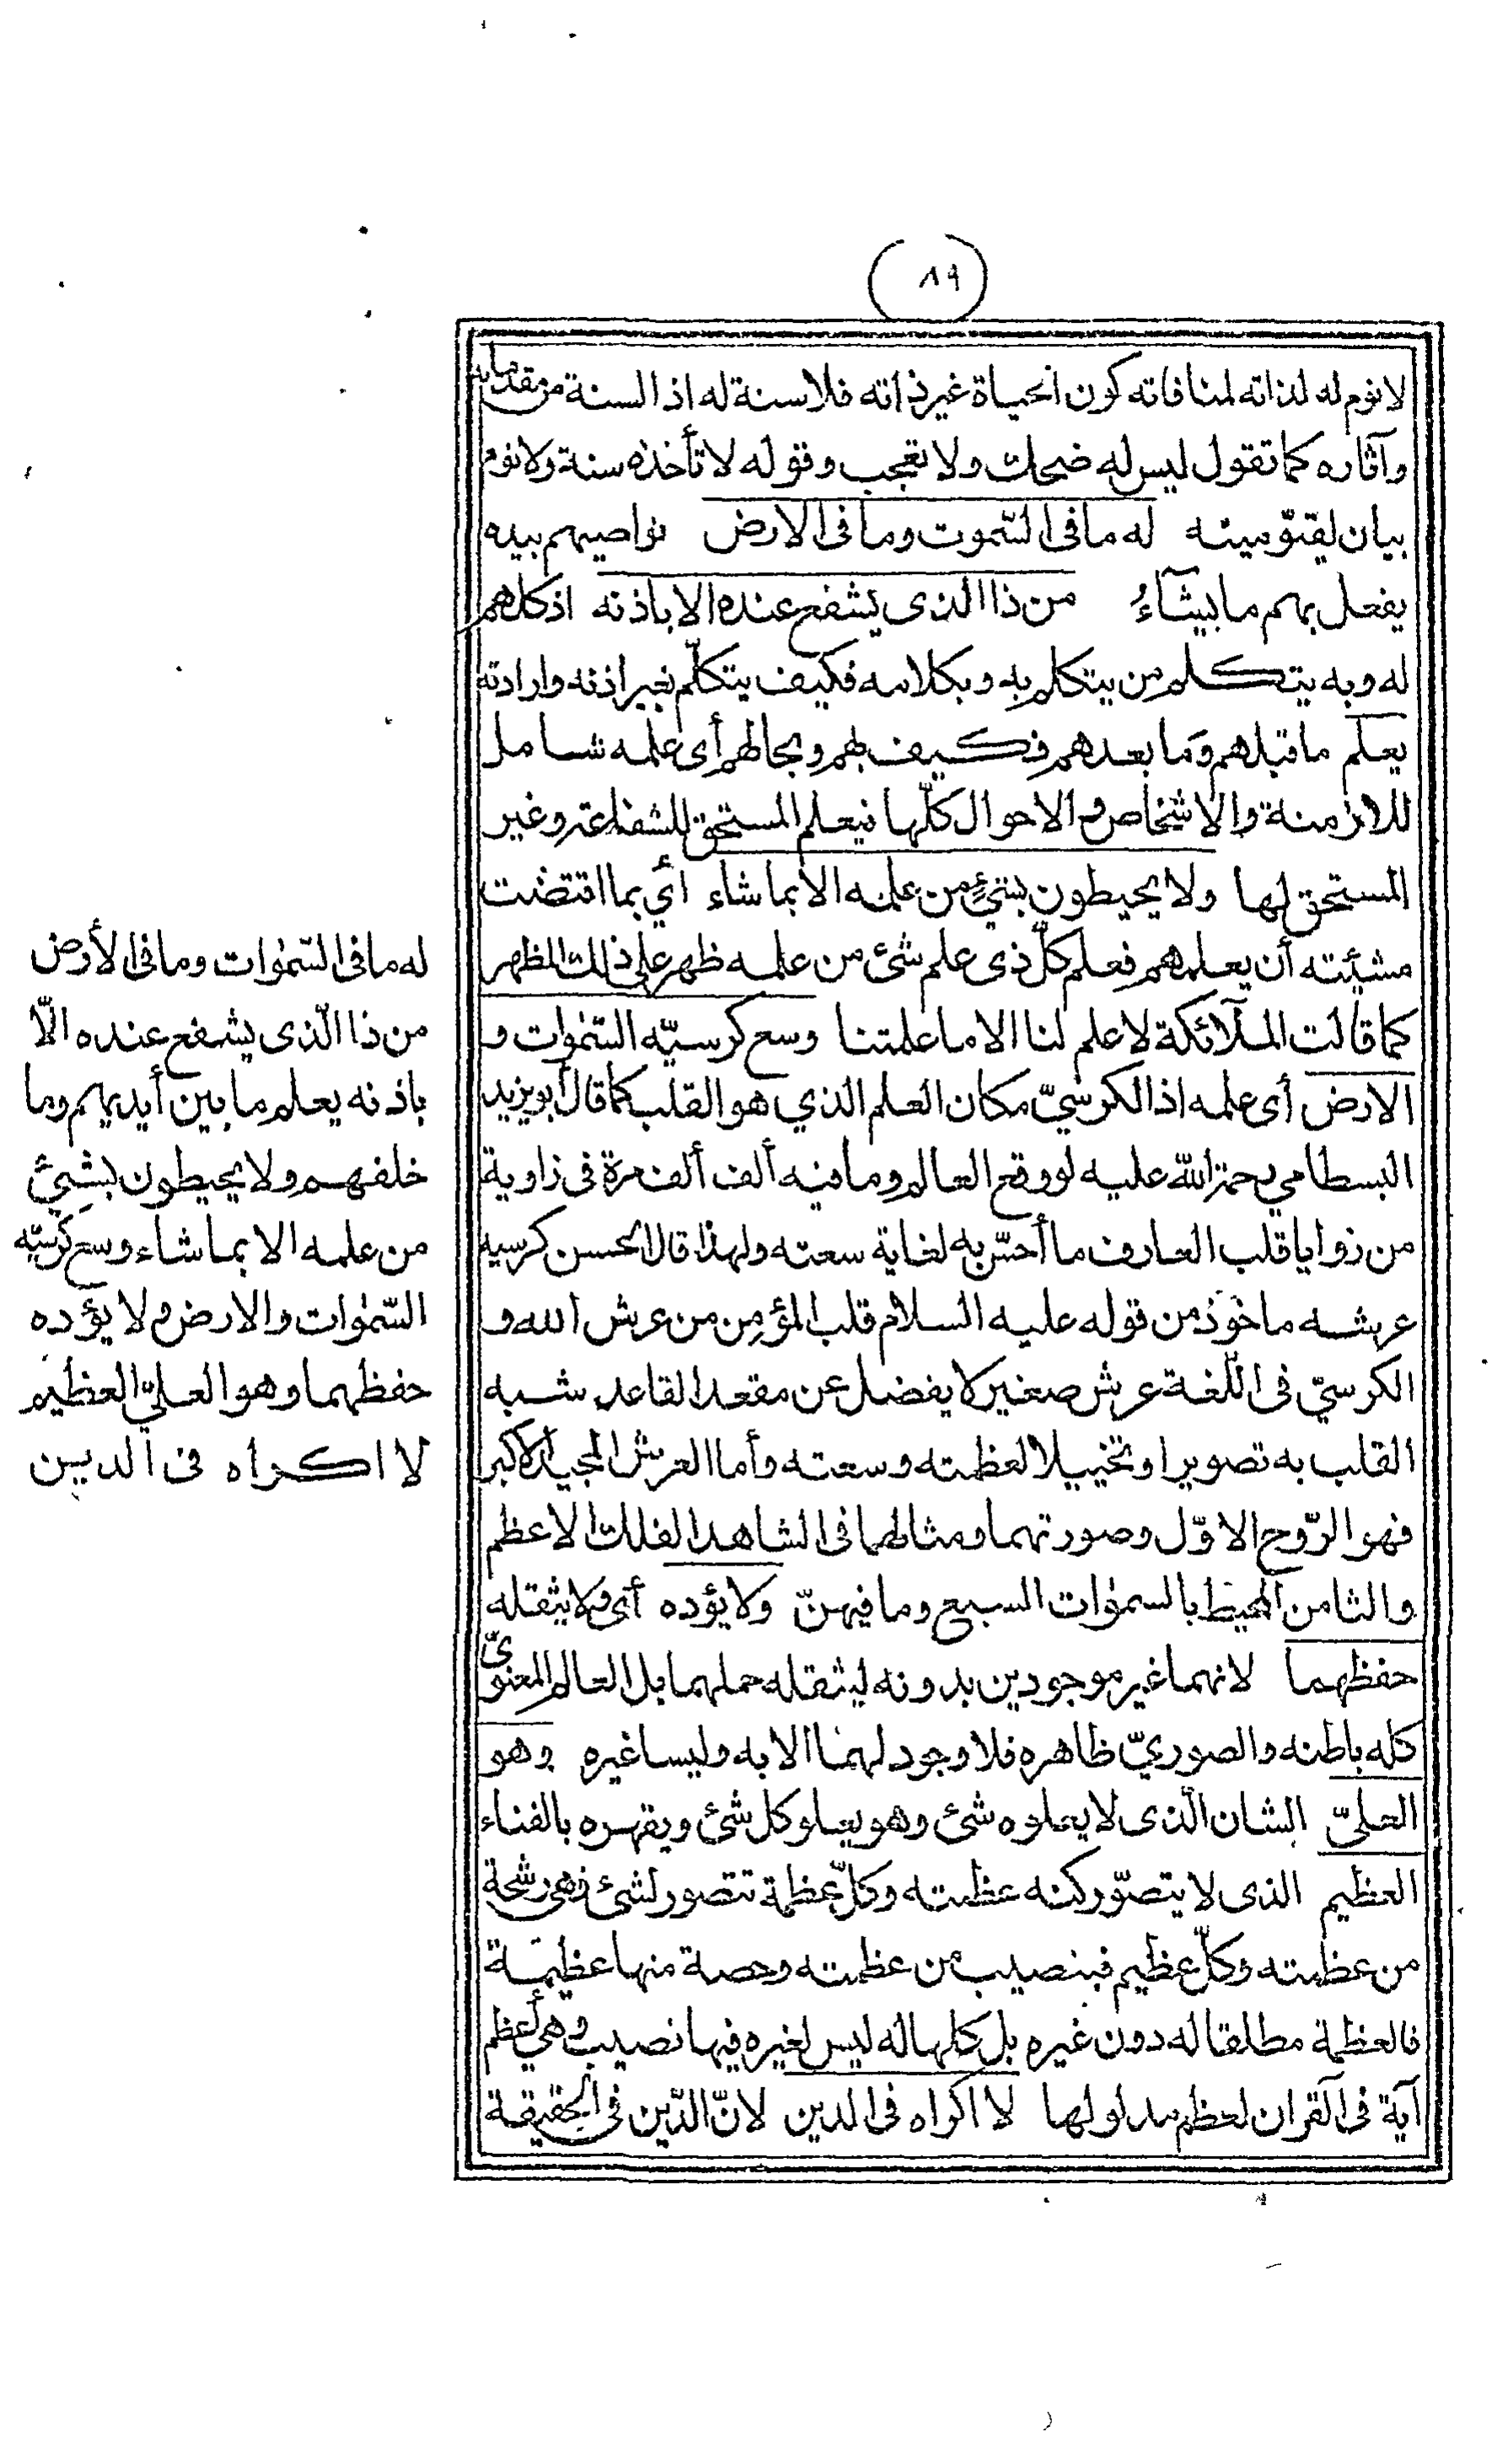 (٨٩)
لا نوم له لذاته لمنافاته كون الحياة غير ذاته فلا سنة له اذ السنة من مقدماته
وآثاره كما تقول ليس له ضحك ولا تعجب وقوله لا تأخذه سنة ولا نوم
بيان لقيّوميته له ما فى السّموت وما فى الارض نواصيهم بيده
يفعل بهم ما يشآءُ من ذا الذى يشفع عنده الا باذنه اذ كلهم
له وبه يتكلم من يتكلم به وبكلامه فكيف يتكلّم بغير اذنه وارادته
يعلم ما قبلهم وَما بعدهم فكيف بهم وبحالهم أى علمه شامل
للازمنة والاشخاص والاحوال كلّها فيعلم المستحق للشفاعة وغير
المستحق لها ولا يحيطون بشيْءٍ من علمه الا بما شاء أي بما اقتضت
مشيئته أن يعلمهم فعلم كلّ ذى علم شئ من علمه ظهر على ذلك المظهر
كما قالت الملآئكة لا علم لنا الا ما علمتنا وسع كرسيّه السّمٰوات و
الارض أى علمه اذ الكرسيّ مكان العلم الذي هو القلب كما قال أبو يزيد
البسطامي رحمة الله عليه لو وقع العالم وما فيه ألف ألف مرة فى زاوية
من زوايا قلب العارف ما أحسّ به لغاية سعته ولهذا قال الحسن كرسيه
عرشه ماخوذ من قوله عليه السلام قلب المؤمن من عرش الله و
الكرسيّ فى اللّغة عرش صغير لا يفضل عن مقعد القاعد شبه
القلب به تصويرا وتخييلا لعظمته وسعته وأما العرش المجيد الاكبر
فهو الرّوح الاوّل وصورتهما ومثالهما فى الشاهد الفلك الاعظم
والثامن المحيط بالسمٰوات السبع وما فيهنّ ولا يؤده أى ولا يثقله
حفظهما لانهما غير موجودين بدونه ليثقله حملهما بل العالم المعنوىّ
كله باطنه والصوريّ ظاهره فلا وجود لهما الا به وليسا غيره وهو
العلىّ الشان الّذى لا يعلوه شئ وهو يعلو كل شئ ويقهره بالفناء
العظيم الذى لا يتصوّر كنه عظمته وكلّ عظمة تتصور لشئ فهى رشحة
من عظمته وكلّ عظيم فبنصيب من عظمته وحصة منها عظيمة
فالعظمة مطلقا له دون غيره بل كلها له ليس لغيره فيها نصيب وهي أعظم
آية فى القرآن لعظم مدلولها لا اكراه فى الدين لانّ الدّين فى الحقيقة
له ما فى السّمٰوات وما فى الأرض
من ذا الّذى يشفع عنده الّا
باذنه يعلم ما بين أيديهم وما
خلفهم ولا يحيطون بشئٍ
من علمه الا بما شاء وسع كرسيّه
السّمٰوات والارض ولا يؤده
حفظهما وهو العليّ العظيم
لا اكراه فى الدين